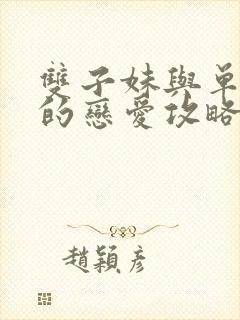 雙子妹與單
的戀愛攻略
趙穎彥